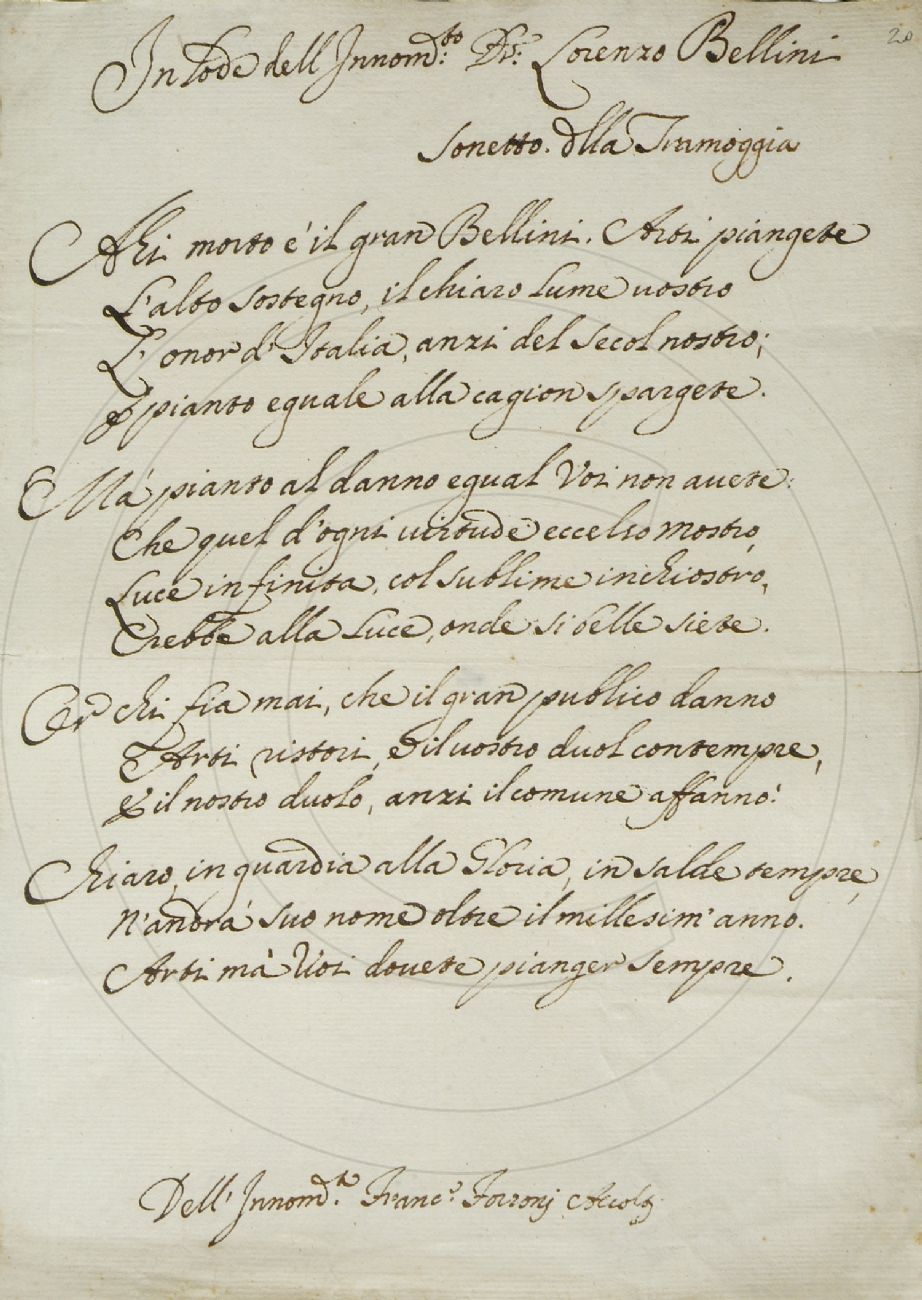 20
In Lode dell Innom:to Dr: Lorenzo Bellini
Sonetto. dlla Tramoggia
Ahi morto é il gran Bellini. Arti piangete
L'alto sostegno, il chiaro Lume uostro
L'onor d'Italia, anzi del Secol nostro;
E pianto eguale alla cagion spargete.
Má pianto al danno egual Voi non auete:
Che quel d'ogni uirtude eccelso Mostro,
Luce infinita, col sublime inchiostro,
Crebbe alla Luce, onde sì belle siete.
Er chi fia mai, che il gran publico danno
Arti ristori, E il uostro duol contempre,
E il nostro duolo, anzi il comune affanno?
Chiaro, in guardia alla Gloria, in salde tempre,
N'andrá suo nome oltre il millesim' anno.
Arti má Voi douete pianger sempre.
Dell' Innom:to Franc:o Forzonj Accolti